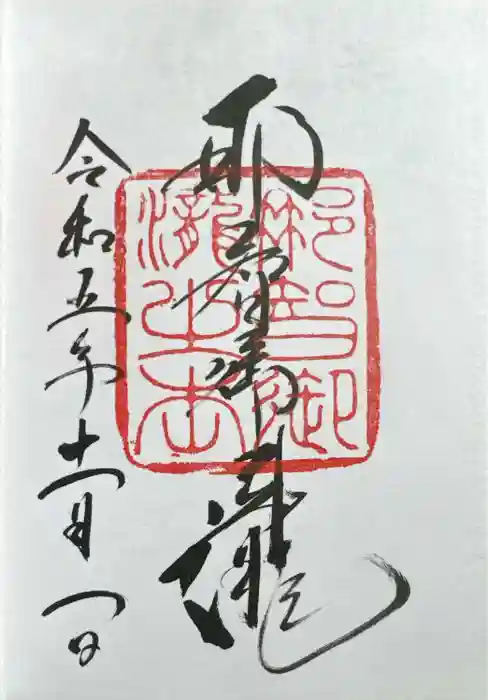 那智御瀧
那智御
瀧之
令和五年十一月一日